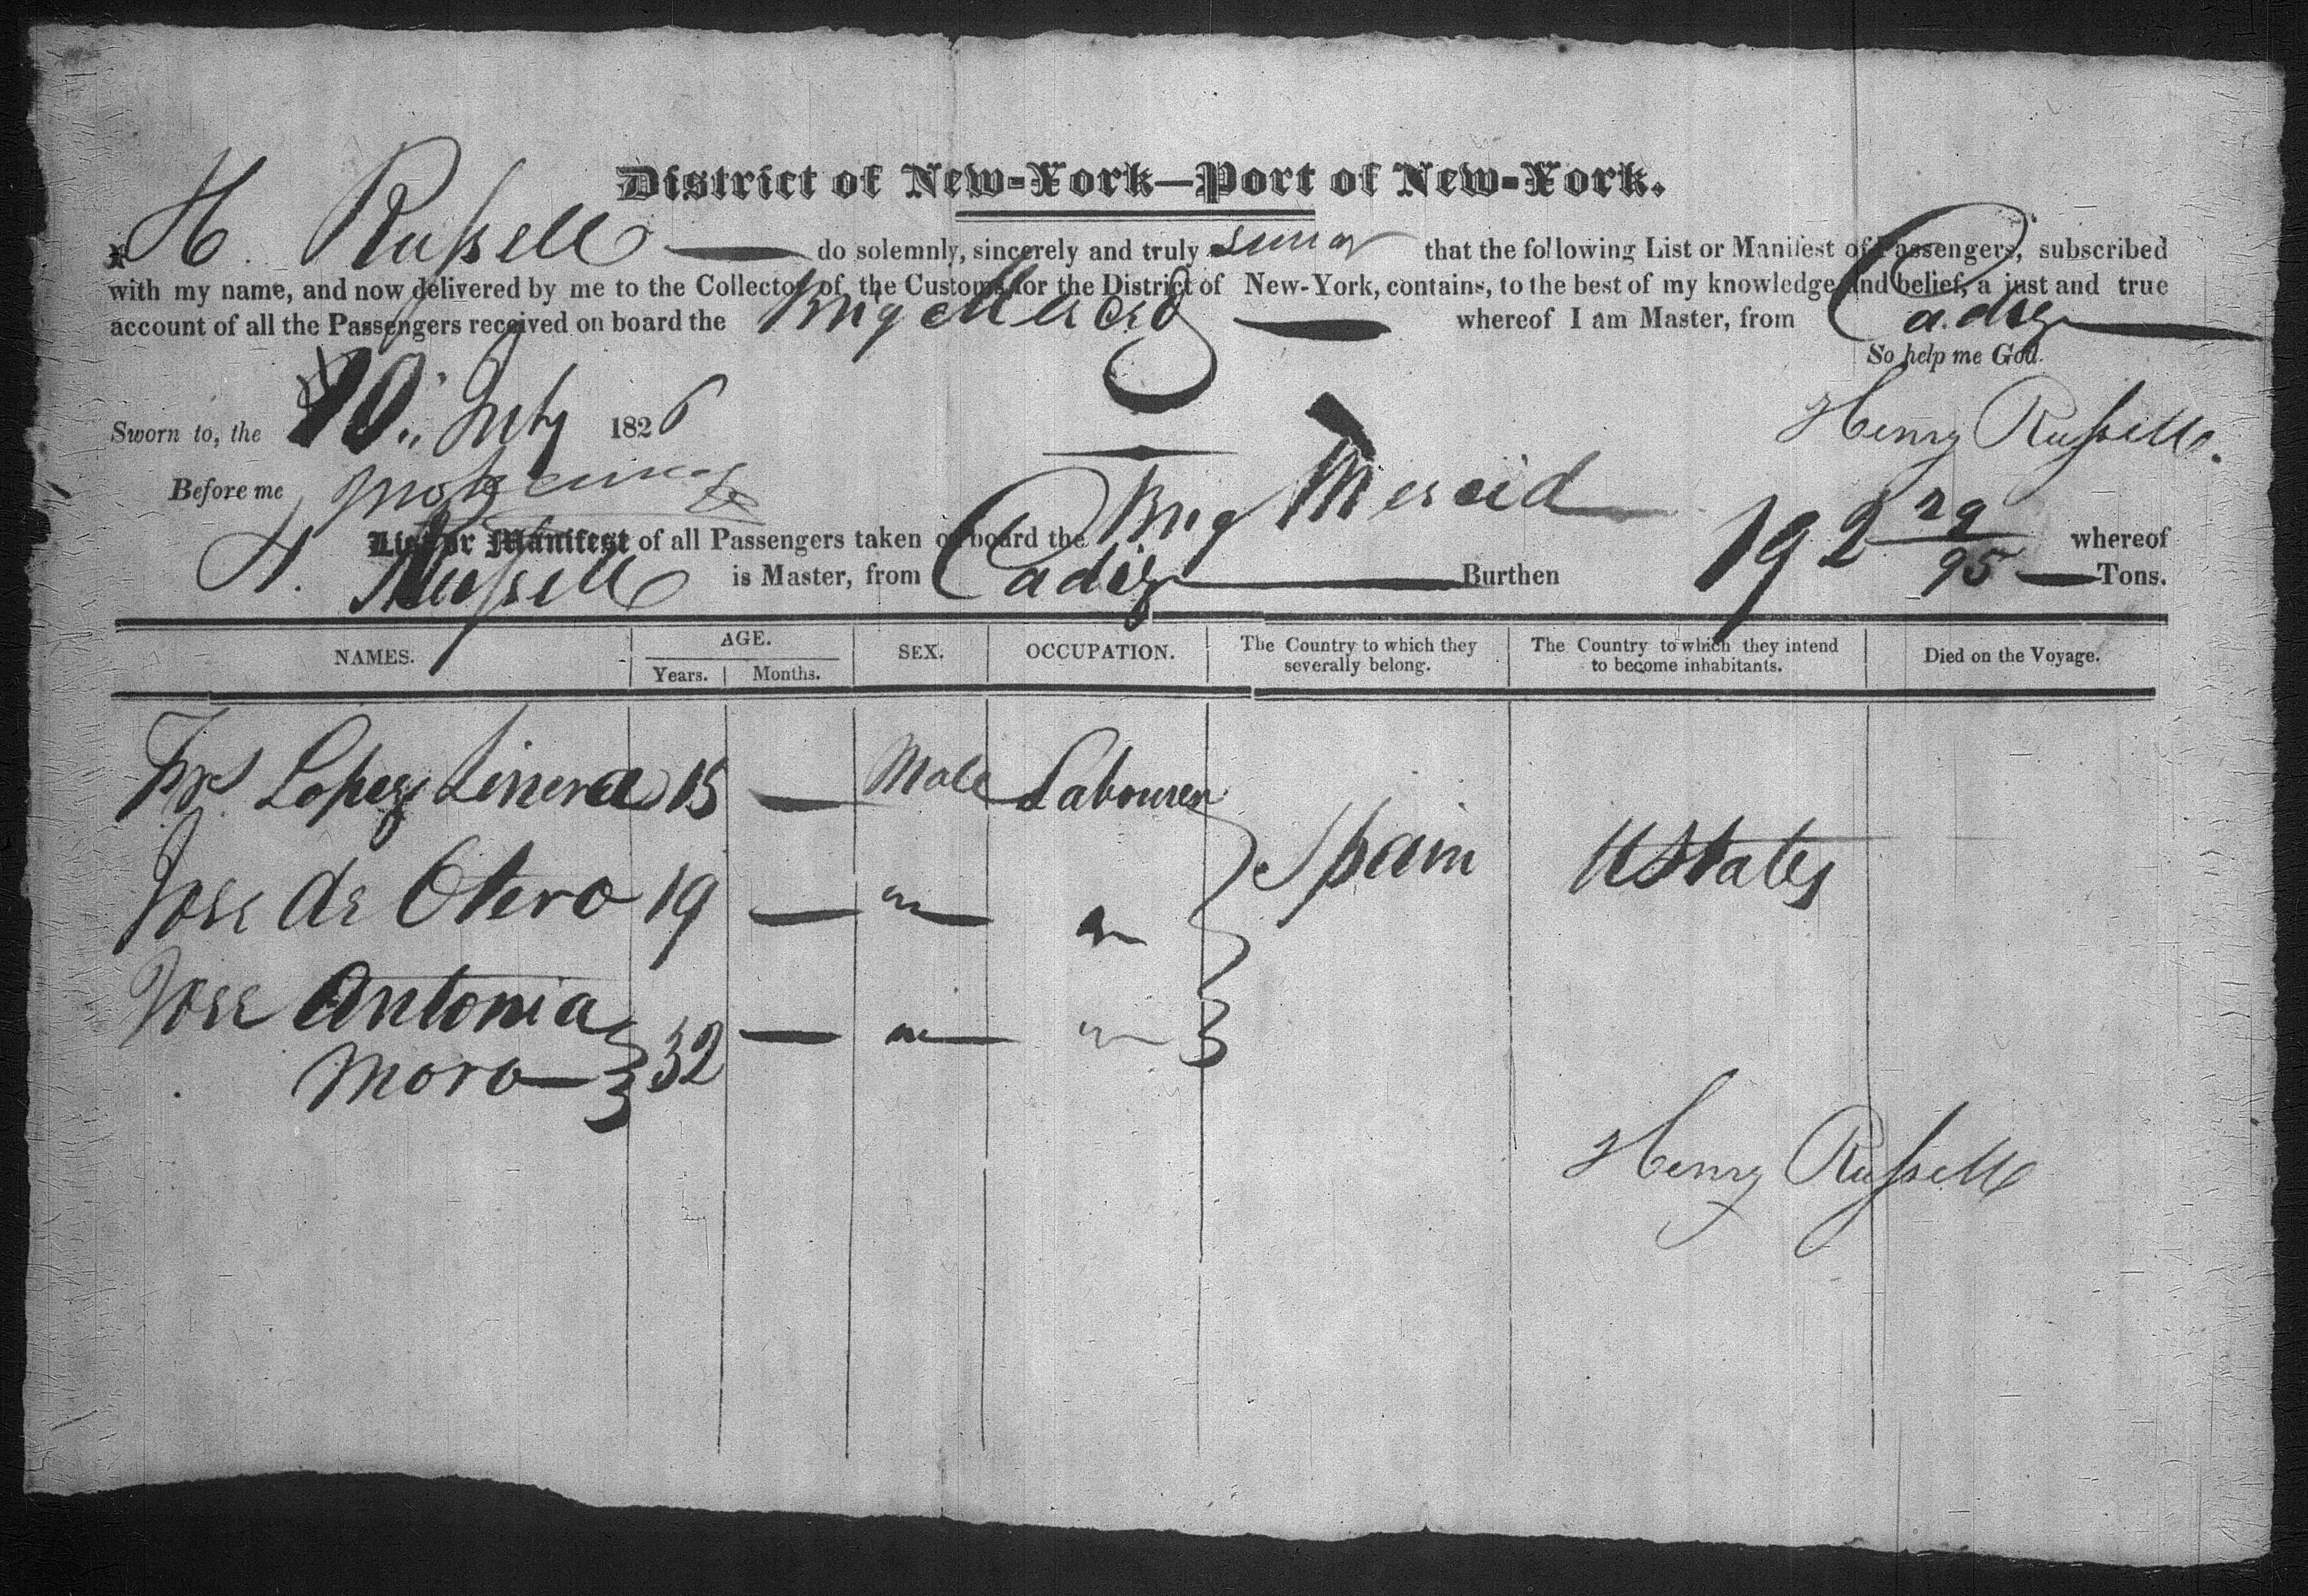 District of New-York—Port of New-York.
I H. Russell do solemnly, sincerely and truly swear that the following List or Manifest of Passengers, subscribed
with my name, and now delivered by me to the Collector of the Customs for the District of New-York, contains, to the best of my knowledge and belief, a just and true
account of all the Passengers received on board the Brig whereof I am Master, from Cadiz
So help me God.
Sworn to, the 10 July 1826
Henry Russell.
Before me
List or Manifest of all Passengers taken on board the Brig 192 29/95 whereof
H. Russell is Master, from Cadiz Burthen Tons.
NAMES. AGE. SEX. OCCUPATION. The Country to which they severally belong. The Country to which they intend to become inhabitants. Died on the Voyage.
Years. Months.
Lopez 15 — Male Labourer
Jose de Otero 19 — " " Spain UStates
Jose Antonia
Moro 32 — " "
Henry Russell